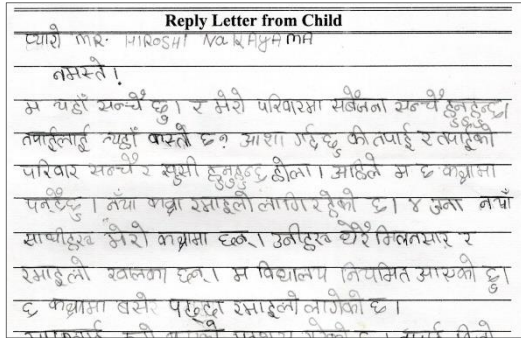 Reply Letter from Child
प्यारो MR. HIROSHI NARAYAMA
नमस्ते!
म यहाँ सन्चै छु। र मेरो परिवारमा सबैजना सन्चै हुनुहुन्छ।
तपाईलाई त्यहाँ कस्तो छ? आशा गर्दछु की तपाई र तपाईको
परिवार सन्चै र खुसी हुनुहुन्छ होला। अहिले म ६ कक्षामा
पढ्दैछु। नयाँ कक्षा रमाइलो लागि रहेको छ। ४ जना नयाँ
साथीहरू मेरो कक्षामा छन्। उनीहरू धेरै मिलनसार र
रमाइलो खालका छन्। म विद्यालय नियमित आएको छु।
६ कक्षामा बसेर पढ्दा रमाइलो लागेको छ।